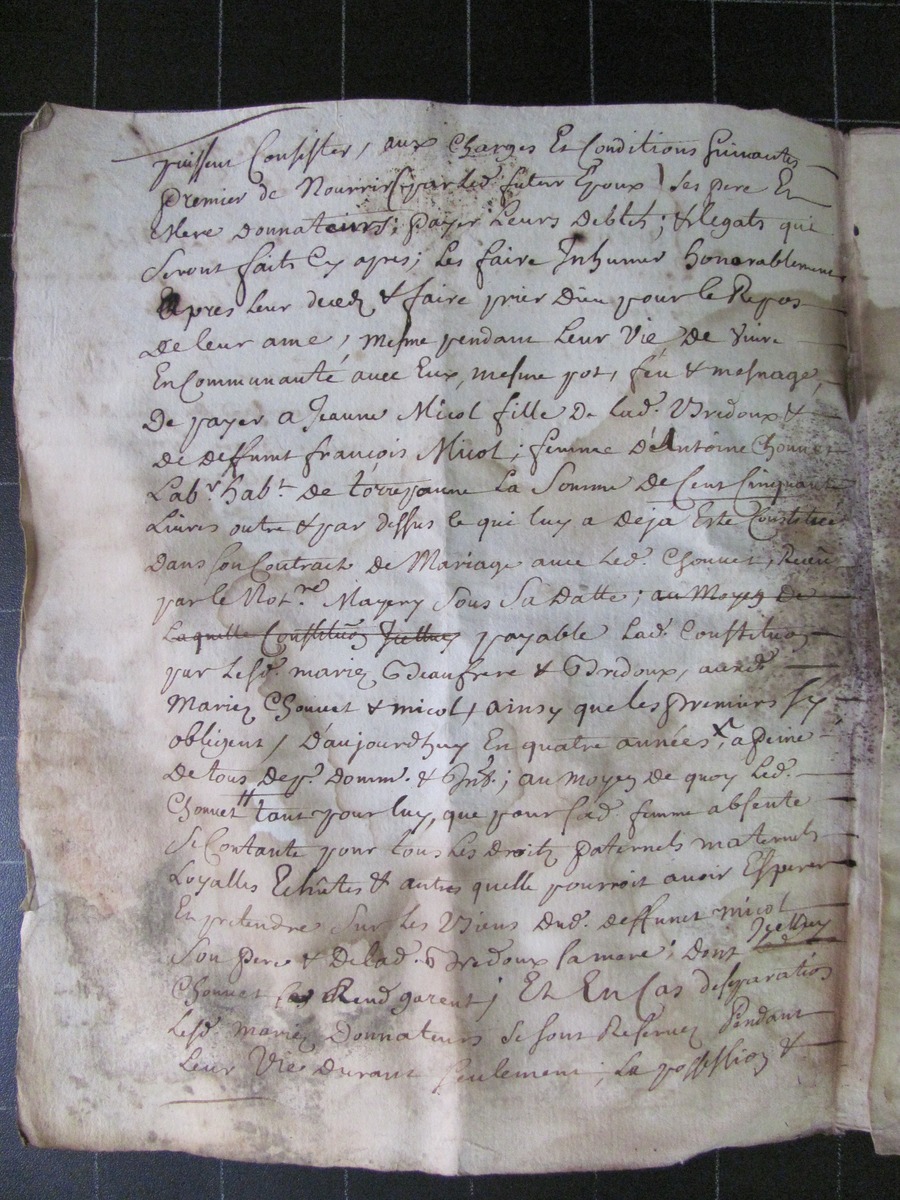 puissent Consister, aux Charges Et Conditions suivantes
premier de Nourrir (par led. futur Epoux) ses pere Et
Mere donnateurs; payer Leurs debtes; & legats qui
seront faits Cy apres; les faire Inhumer honorablement
Apres leur decedz & faire prier Dieu pour le Repos
de leur ame, mesme pendant Leur Vie de vivre
En Communauté avec Eux, mesme pot, feu & mesnage,
De payer a Jeanne Micol fille de lad. Bredoux &
de deffunt françois Micol; femme d'Antoine Chouvet
Labr. habt. de torrejanne La Somme de Cent Cinquante
Livres outre & par dessus ce qui luy a Deja Esté Constitué
dans son Contract de Mariage avec led. Chouvet, Receu
par le Notre. Mayery sous sa Datte; au Moyen de
Laquelle Constituon Icelluy payable lad. Constituon
par lesd. mariez Beaufrere & Bredoux, auxd.
Mariez Chouvet & micol, ainsy que les premiers s'y
obligent, D'aujourdhuy En quatre années, a peine
de tous desp. domm. & Int.; au moyen de quoy Led.
Chouvet tant pour luy, que pour sad. femme absente
se Contante pour tous Les droitz paternels maternels
Loyalles Echûtes & autres quelle pourroit avoir Esperer
Et pretendre sur les Biens dud. deffunct micol
son pere & de lad. Bredoux sa mere; dont Icelluy
Chouvet se Rend garent; Et En Cas de separation
Lesd. mariez Donnateurs se sont Reservez Pendant
Leur Vie durant seulement, La possession &